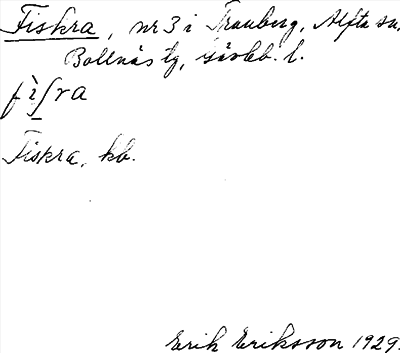 Fiskra, nr 3 i Tranberg, Alfta sn,
Bollnäs tg, Gävleb. l.
fìʃra
Fiskra, kb.
Erik Eriksson 1929.